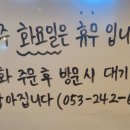 주 화요일은 휴무 입니
화 주문 후 방문시 대기
짧아집니다 (053-242-6